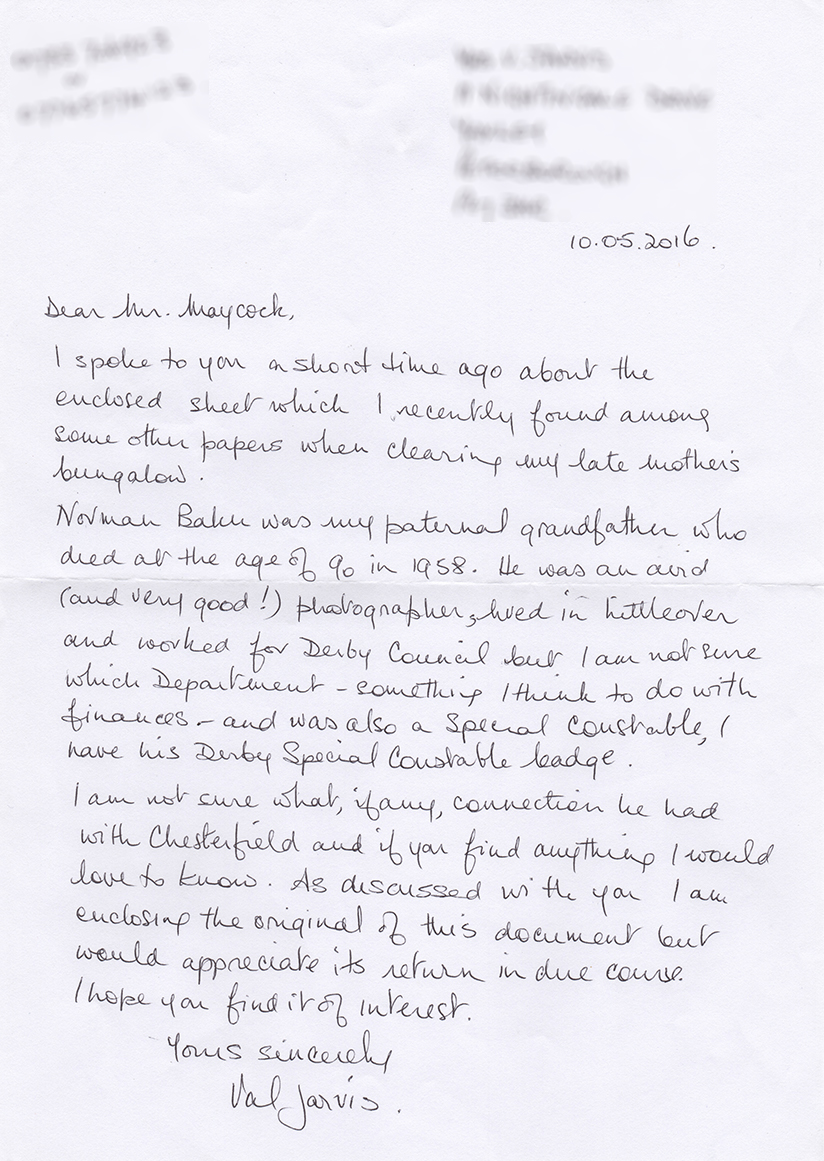 10.05.2016.
Dear Mr. Maycock,
I spoke to you a short time ago about the
enclosed sheet which I recently found among
some other papers when clearing my late mother's
bungalow.
Norman Baker was my paternal grandfather who
died at the age of 90 in 1958. He was an avid
(and very good!) photographer, lived in Littleover
and worked for Derby Council but I am not sure
which Department - something I think to do with
finances - and was also a Special Constable, I
have his Derby Special Constable badge.
I am not sure what, if any, connection he had
with Chesterfield and if you find anything I would
love to know. As discussed with you I am
enclosing the original of this document but
would appreciate its return in due course.
I hope you find it of interest.
Yours sincerely
Val Jarvis.